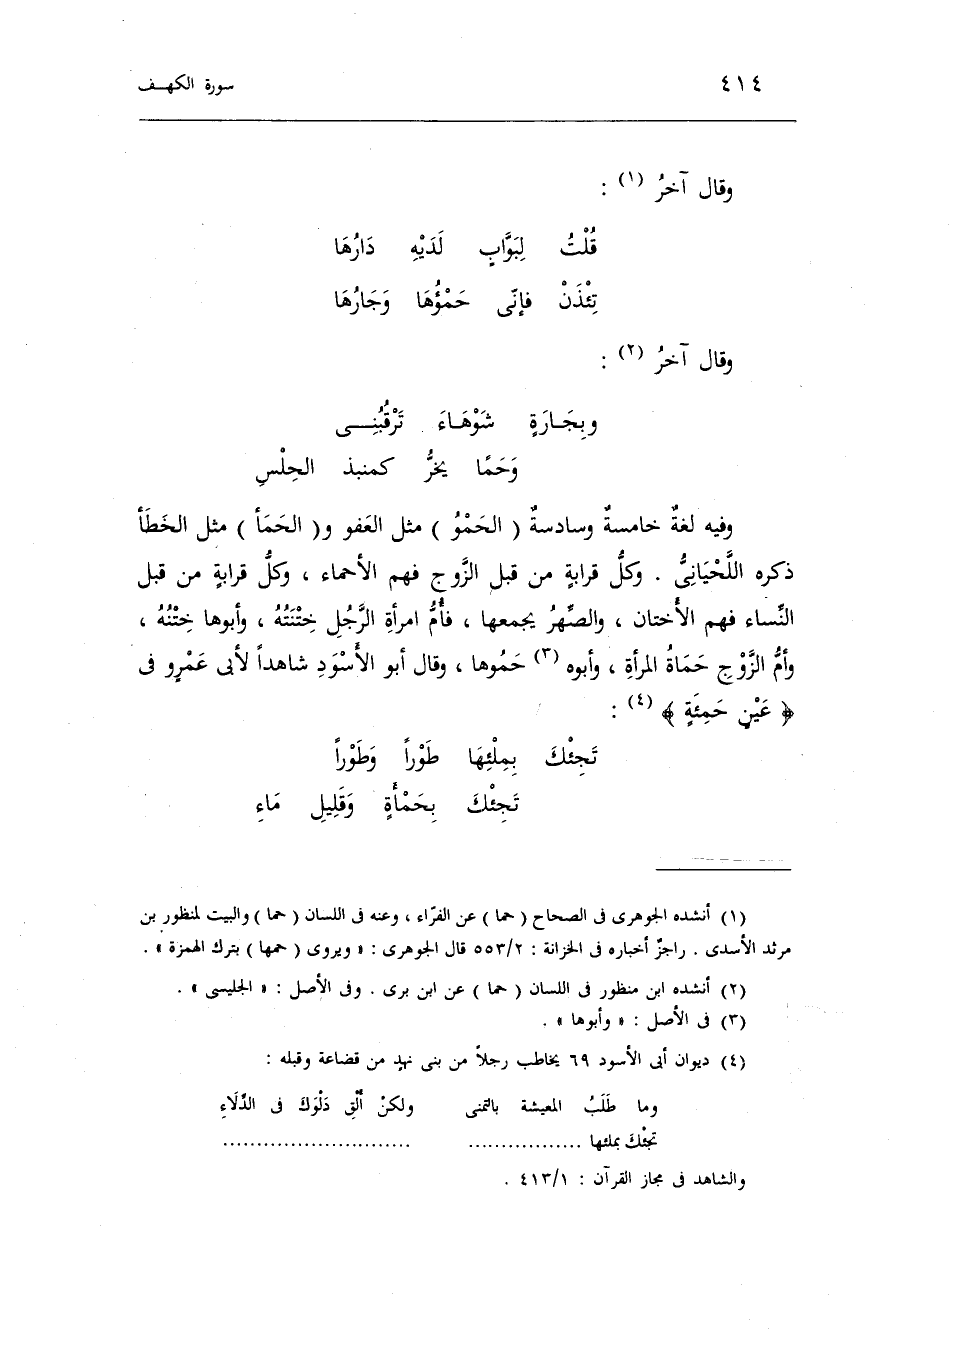 ٤١٤ سورة الكهف
وقال آخرُ (١) :
قُلْتُ لِبَوَّابٍ لَدَيْهِ دَارُهَا
تِئْذَنْ فإنّى حَمْؤُهَا وَجَارُهَا
وقال آخرُ (٢) :
وبِجَارَةٍ شَوْهَاءَ تَرْقُبُنِى
وَحَمًا يخرُّ كمنبذ الحِلْسِ
وفيه لغةٌ خامسةٌ وسادسةٌ ( الحَمْوُ ) مثل العَفو و( الحَمَأ ) مثل الخَطَأ
ذكره اللَّحْيَانِىُّ . وكلُّ قرابةٍ من قبل الزَّوج فهم الأحماء ، وكلُّ قرابةٍ من قبل
النِّساء فهم الأَختان ، والصِّهرُ يجمعها ، فأُمُّ امرأةِ الرَّجُلِ خِتْنَتُهُ ، وأبوها خِتْنُهُ ،
وأمُّ الزَّوْجِ حَمَاةُ المرأةِ ، وأبوه (٣) حَمُوها ، وقال أبو الأَسْوَدِ شاهداً لأبى عَمْرٍو فى
﴿ عَيْنٍ حَمِئَةٍ ﴾ (٤) :
تَجِئْكَ بِمِلْئِهَا طَوْراً وَطَوْراً
تَجِئْكَ بِحَمْأَةٍ وَقَلِيلِ مَاءِ
(١) أنشده الجوهرى فى الصحاح ( حما ) عن الفرّاء ، وعنه فى اللسان ( حما ) والبيت لمنظور بن
مرثد الأسدى . راجزٌ أخباره فى الخزانة : ٥٥٣/٢ قال الجوهرى : « ويروى ( حمها ) بترك الهمزة » .
(٢) أنشده ابن منظور فى اللسان ( حما ) عن ابن برى . وفى الأصل : « الجليسى » .
(٣) فى الأصل : « وأبوها » .
(٤) ديوان أبى الأسود ٦٩ يخاطب رجلاً من بنى نهد من قضاعة وقبله :
وما طَلَبُ المعيشة بالتمنى ولكنْ أَلْقِ دَلْوَكَ فى الدِّلَاءِ
تجئْكَ بملئها ................. ............................
والشاهد فى مجاز القرآن : ٤١٣/١ .